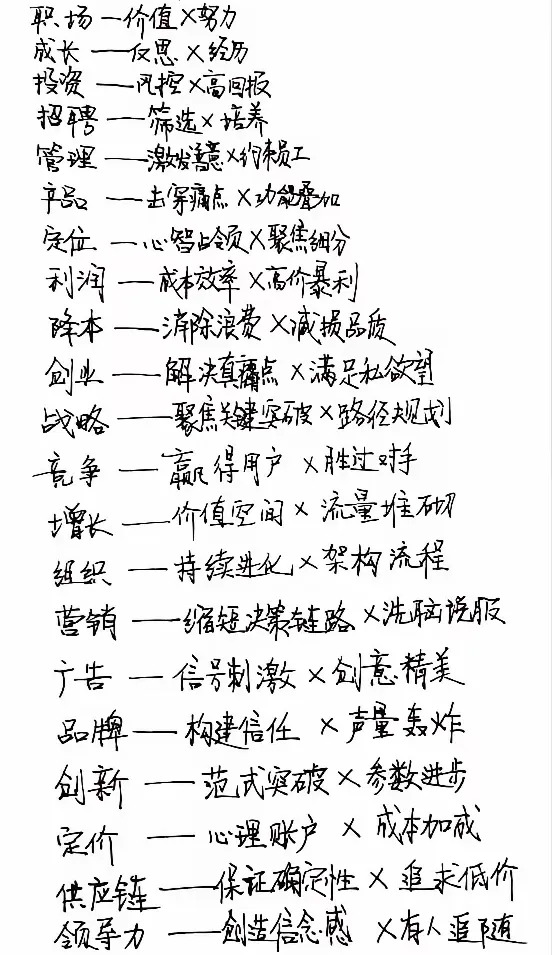 职场—价值×努力
成长——反思×经历
投资——风控×高回报
招聘——筛选×培养
管理——激发善意×约束员工
产品——击穿痛点×功能叠加
定位——心智占领×聚焦细分
利润——成本效率×高价暴利
降本——消除浪费×减损品质
创业——解决真痛点×满足私欲望
战略——聚焦关键突破×路径规划
竞争——赢得用户×胜过对手
增长——价值空间×流量堆砌
组织——持续进化×架构流程
营销——缩短决策链路×洗脑说服
广告——信号刺激×创意精美
品牌——构建信任×声量轰炸
创新——范式突破×参数进步
定价——心理账户×成本加成
供应链——保证确定性×追求低价
领导力——创造信念感×有人追随